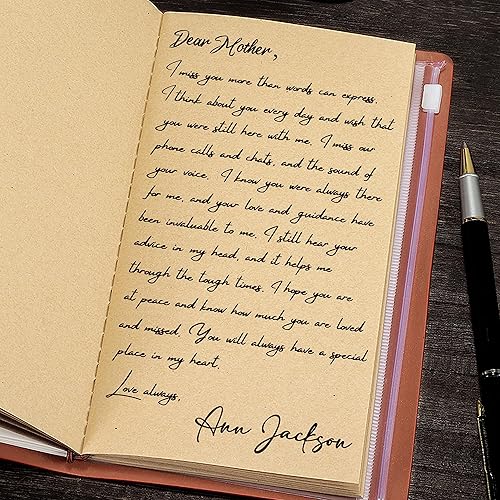 Dear Mother,
I miss you more than words can express.
I think about you every day and wish that
you were still here with me. I miss our
phone calls and chats, and the sound of
your voice. I know you were always there
for me, and your love and guidance have
been invaluable to me. I still hear your
advice in my head, and it helps me
through the tough times. I hope you are
at peace and know how much you are loved
and missed. You will always have a special
place in my heart.
Love always,
Ann Jackson